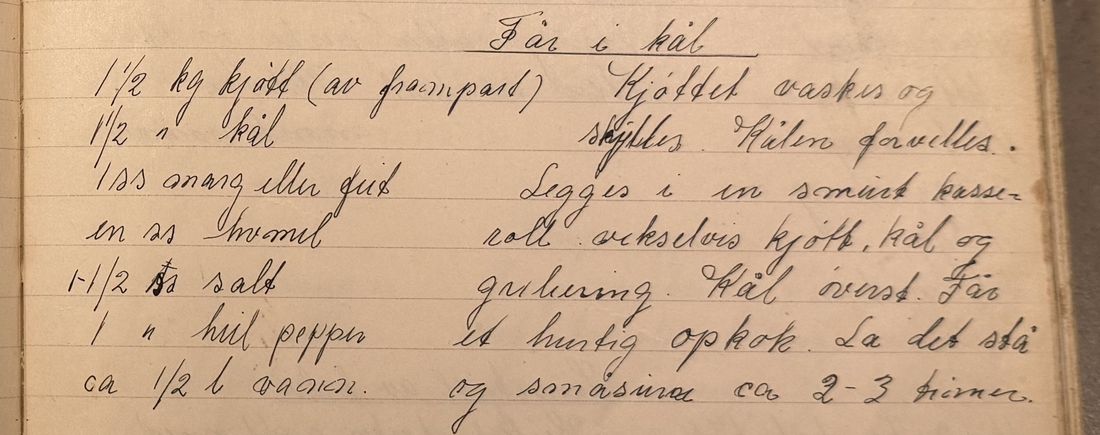 Får i kål
1 1/2 kg kjøtt (av frampart)
1 1/2 " kål
1 ss marg eller feit
en ss hvmel
1-1/2 ss salt
1 " heil pepper
ca 1/2 l vann.
Kjøttet vaskes og
skylles. Kålen forvelles.
Legges i en smurt kasse=
roll vekselvis kjøtt, kål og
Kål øverst. Får
et hurtig opkok. La det stå
og ca 2-3 timer.